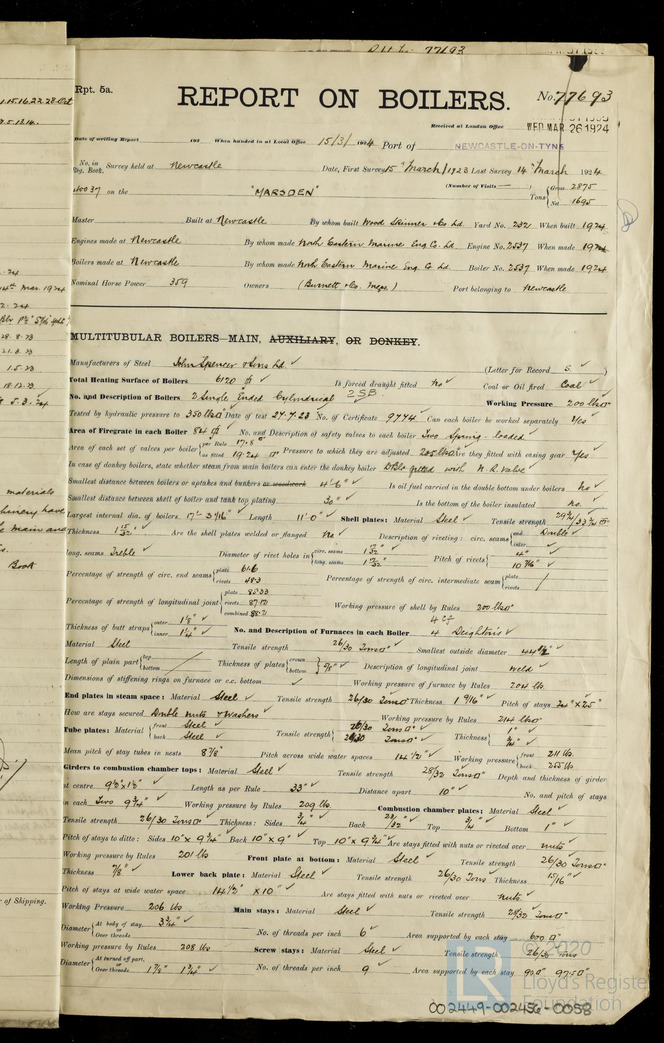 Rpt. 5a.
REPORT ON BOILERS.
No. 77693
Received at London Office WED MAR 26 1924
Date of writing Report 192 When handed in at Local Office 15/3/1924 Port of NEWCASTLE-ON-TYNE
No. in Reg. Book. Survey held at Newcastle Date, First Survey 15th March/1923 Last Survey 14th March 1924
on the "MARSDEN" (Number of Visits —) Tons Gross 2875 Net 1695
Master Built at Newcastle By whom built Wood Skinner & Co Ld Yard No. 232 When built 1924
Engines made at Newcastle By whom made North Eastern Marine Eng Co Ld Engine No. 2537 When made 1924
Boilers made at Newcastle By whom made North Eastern Marine Eng Co Ld Boiler No. 2537 When made 1924
Nominal Horse Power 359 Owners (Burnett & Co. Mgrs.) Port belonging to Newcastle
MULTITUBULAR BOILERS—MAIN, AUXILIARY, OR DONKEY.
Manufacturers of Steel John Spencer & Sons Ld. (Letter for Record S)
Total Heating Surface of Boilers 6120 Is forced draught fitted No Coal or Oil fired Coal
No. and Description of Boilers 2 Single Ended Cylindrical 2SB Working Pressure 200 lbs
Tested by hydraulic pressure to 350 lbs Date of test 27.7.23 No. of Certificate 9774 Can each boiler be worked separately Yes
Area of Firegrate in each Boiler No. and Description of safety valves to each boiler Two Spring loaded
Area of each set of valves per boiler per Rule 17.8 as fitted 19.24 Pressure to which they are adjusted 205 lbs Are they fitted with easing gear Yes
In case of donkey boilers, state whether steam from main boilers can enter the donkey boiler fitted with N.R. Valve
Smallest distance between boilers or uptakes and bunkers or woodwork 4'-6" Is oil fuel carried in the double bottom under boilers No
Smallest distance between shell of boiler and tank top plating 30" Is the bottom of the boiler insulated No.
Largest internal dia. of boilers 17'-3 9/16" Length 11'-0" Shell plates: Material Steel Tensile strength
Thickness 1 15/32" Are the shell plates welded or flanged No Description of riveting: circ. seams end Double inter.
long. seams Treble Diameter of rivet holes in circ. seams long. seams Pitch of rivets 4" 10 7/16"
Percentage of strength of circ. end seams plate 61.6 rivets 48.3 Percentage of strength of circ. intermediate seam plate rivets
Percentage of strength of longitudinal joint plate 85.33 rivets combined Working pressure of shell by Rules 200 lbs
Thickness of butt straps outer 1 1/8" inner 1 1/4" No. and Description of Furnaces in each Boiler 4 Deighton's
Material Steel Tensile strength 26/30 Tons Smallest outside diameter
Length of plain part top bottom Thickness of plates crown bottom Description of longitudinal joint weld
Dimensions of stiffening rings on furnace or c.c. bottom Working pressure of furnace by Rules 204 lbs
End plates in steam space: Material Steel Tensile strength 26/30 Tons Thickness 1 9/16" Pitch of stays 24" x 25"
How are stays secured Double nuts & Washers Working pressure by Rules 214 lbs
Tube plates: Material front Steel back Steel Tensile strength 26/30 Tons Tons Thickness 1" 3/4"
Mean pitch of stay tubes in nests 8 7/8" Pitch across wide water spaces 14 1/2" Working pressure front 211 lbs back 255 lbs
Girders to combustion chamber tops: Material Steel Tensile strength 28/32 Tons Depth and thickness of girder
at centre 9 1/2" x 1 1/2" Length as per Rule 33" Distance apart 10" No. and pitch of stays
in each Two 9 3/4" Working pressure by Rules 209 lbs Combustion chamber plates: Material Steel
Tensile strength 26/30 Tons Thickness: Sides 3/4" Back Top 3/4" Bottom 1"
Pitch of stays to ditto: Sides 10" x 9 3/4" Back 10" x 9" Top 10" x 9 3/4" Are stays fitted with nuts or riveted over nuts
Working pressure by Rules 201 lbs Front plate at bottom: Material Steel Tensile strength 26/30 Tons
Thickness 7/8" Lower back plate: Material Steel Tensile strength 26/30 Tons Thickness 15/16"
Pitch of stays at wide water space 14 1/2" x 10" Are stays fitted with nuts or riveted over nuts
Working Pressure 206 lbs Main stays: Material Steel Tensile strength 28/32 Tons
Diameter At body of stay, or Over threads 3 3/4" No. of threads per inch 6 Area supported by each stay 600
Working pressure by Rules 208 lbs Screw stays: Material Steel Tensile strength 26/30 Tons
Diameter At turned off part, or Over threads 1 7/8" 1 3/4" No. of threads per inch 9 Area supported by each stay 90 97.50
© 2020
Lloyd's Register
Foundation
002449-002456-0058